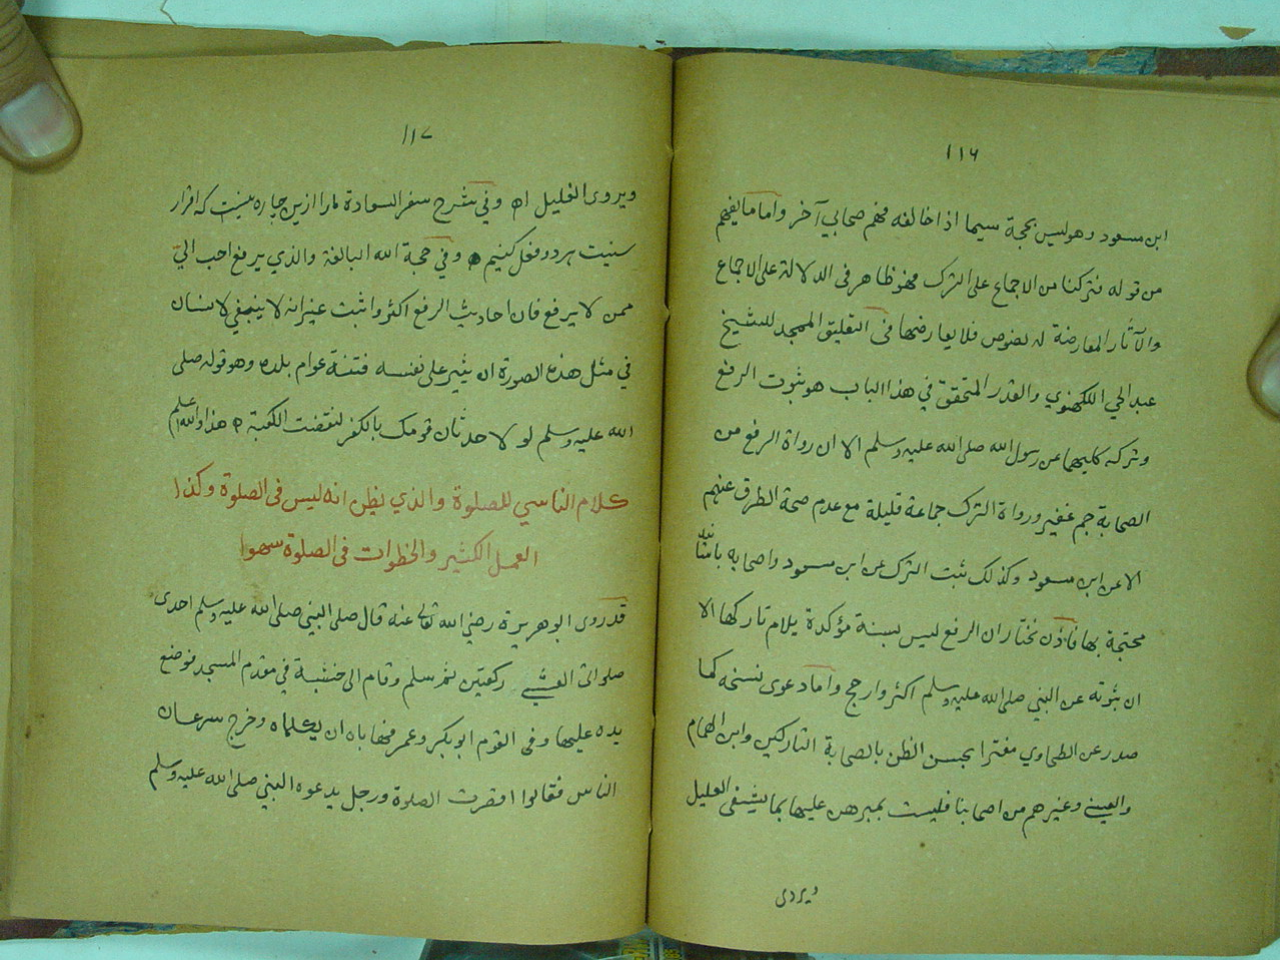 ١١٦
ابن مسعود وهو ليس بحجة سيما اذا خالفه فهم صحابي آخر واما ما يفهم
من قوله فتركنا من الاجماع على الترك فهو ظاهر فى الدلالة على الاجماع
والآثار المعارضة له نصوص فلا يعارضها فى التعليق الممجد للشيخ
عبد الحي اللكهنوي والقدر المتحقق في هذا الباب هو ثبوت الرفع
وتركه كليهما عن رسول الله صلى الله عليه وسلم الا ان رواة الرفع من
الصحابة جم غفير ورواة الترك جماعة قليلة مع عدم صحة الطرق عنهم
الا عن ابن مسعود وكذلك ثبت الترك عن ابن مسعود واصحابه باسانيد
محتجة بها فاذن نختار ان الرفع ليس بسنة مؤكدة يلام تاركها الا
ان ثبوته عن النبي صلى الله عليه وسلم اكثر وارجح واما دعوى نسخه كما
صدر عن الطحاوي مغترا بحسن الظن بالصحابة التاركين وابن الهمام
والعيني وغيرهم من اصحابنا فليست بمبرهن عليها بما يشفى العليل
ويروى
١١٧
ويروى الغليل اه وفي شرح سفر السعادة ما را ازين چاره نيست كه اقرار
سنيت هر دو فعل كنيم اه وفي حجة الله البالغة والذي يرفع احب الي
ممن لا يرفع فان احاديث الرفع اكثر واثبت غير انه لا ينبغي لانسان
في مثل هذه الصورة ان يثير على نفسه فتنة عوام بلده وهو قوله صلى
الله عليه وسلم لو لا حدثان قومك بالكفر لنقضت الكعبة اه هذا والله اعلم
كلام الناسي للصلوة والذي يظن انه ليس فى الصلوة وكذا
العمل الكثير والخطوات فى الصلوة سهوا
قد روى ابو هريرة رضي الله تعالى عنه قال صلى النبي صلى الله عليه وسلم احدى
صلواتى العشي ركعتين ثم سلم وقام الى خشبة في مقدم المسجد فوضع
يده عليها وفى القوم ابو بكر وعمر فهاباه ان يكلماه وخرج سرعان
الناس فقالوا اقصرت الصلوة ورجل يدعوه النبي صلى الله عليه وسلم